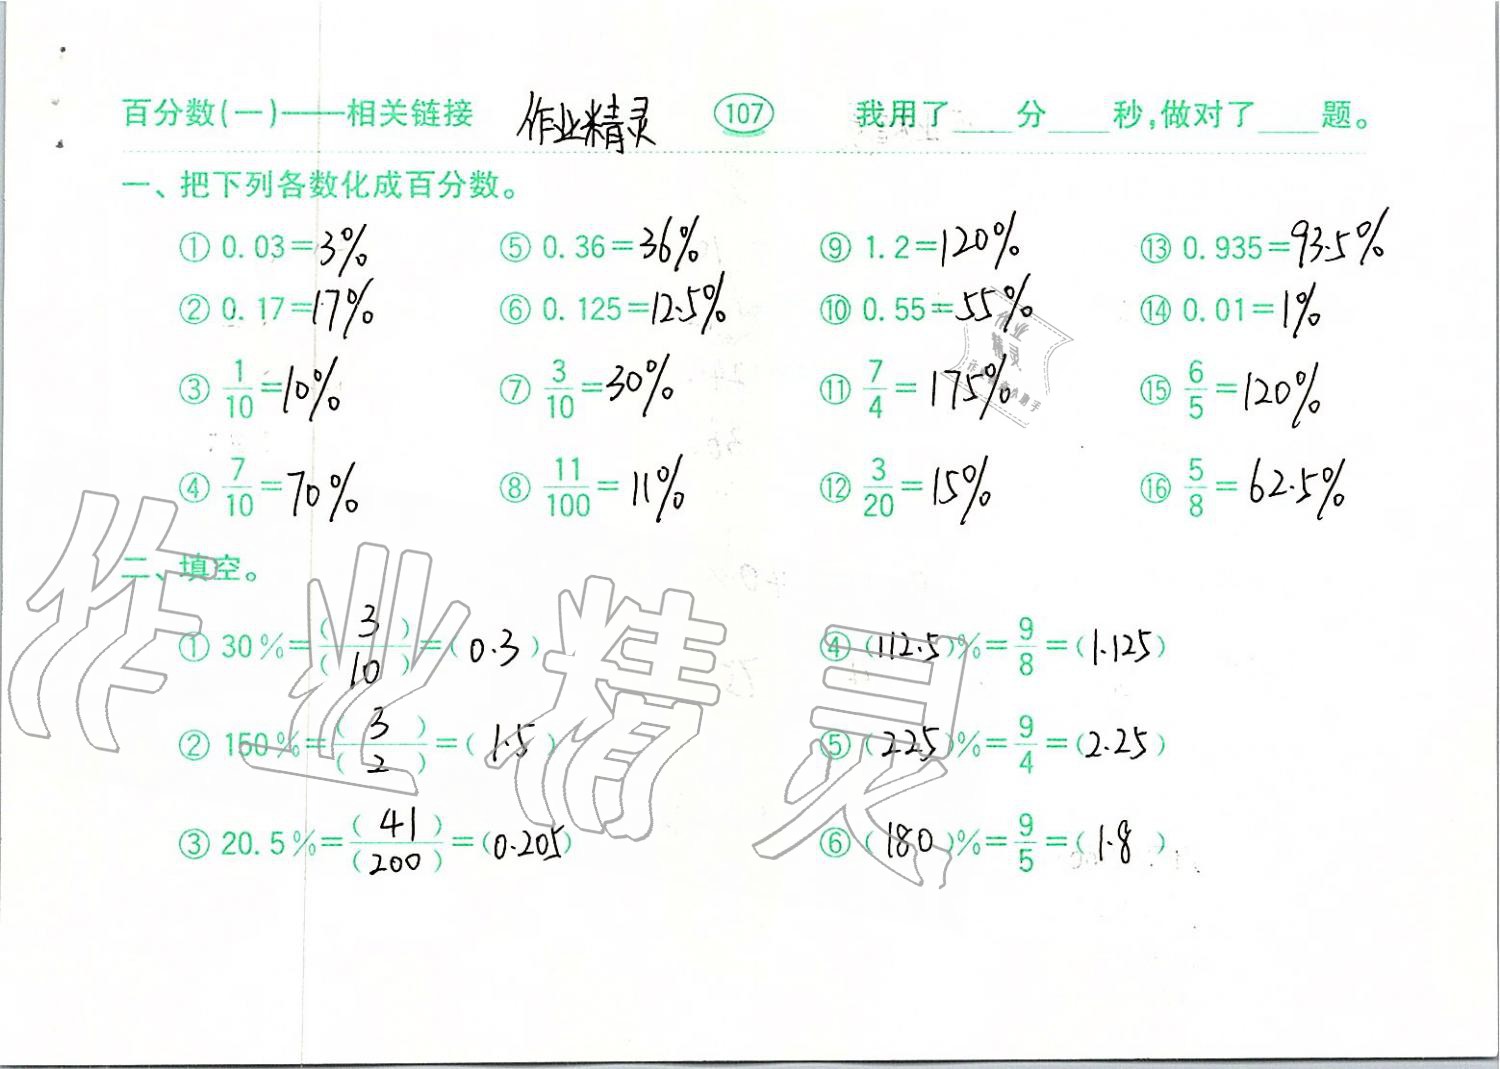 百分数(一)——相关链接 作业精灵 107 我用了____分____秒,做对了____题。
一、把下列各数化成百分数。
① 0.03=3% ⑤ 0.36=36% ⑨ 1.2=120% ⑬ 0.935=93.5%
② 0.17=17% ⑥ 0.125=12.5% ⑩ 0.55=55% ⑭ 0.01=1%
③ 1/10=10% ⑦ 3/10=30% ⑪ 7/4=175% ⑮ 6/5=120%
④ 7/10=70% ⑧ 11/100=11% ⑫ 3/20=15% ⑯ 5/8=62.5%
二、填空。
① 30%=(3)/(10)=(0.3) ④ (112.5)%=9/8=(1.125)
② 150%=(3)/(2)=(1.5) ⑤ (225)%=9/4=(2.25)
③ 20.5%=(41)/(200)=(0.205) ⑥ (180)%=9/5=(1.8)
作业精灵
作业
精灵